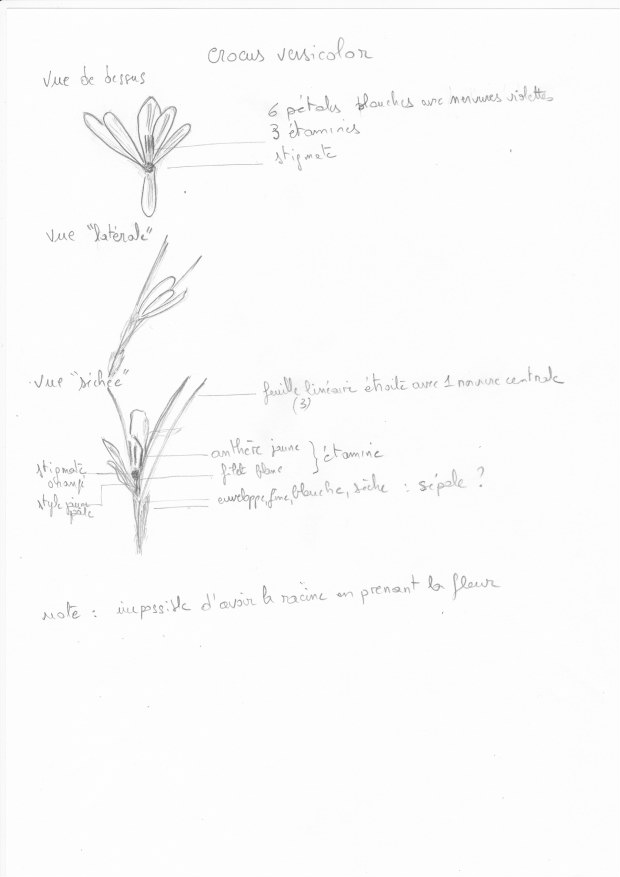 crocus versicolor
vue de dessus
6 pétales blanches avec nervures violettes
3 étamines
stigmate
vue "latérale"
vue "séchée"
feuille linéaire étroite avec 1 nervure centrale
(3)
anthère jaune } étamine
filet blanc
stigmate
orangé
style jaune
pâle
enveloppe, fine, blanche, sèche : sépale ?
note : impossible d'avoir la racine en prenant la fleur